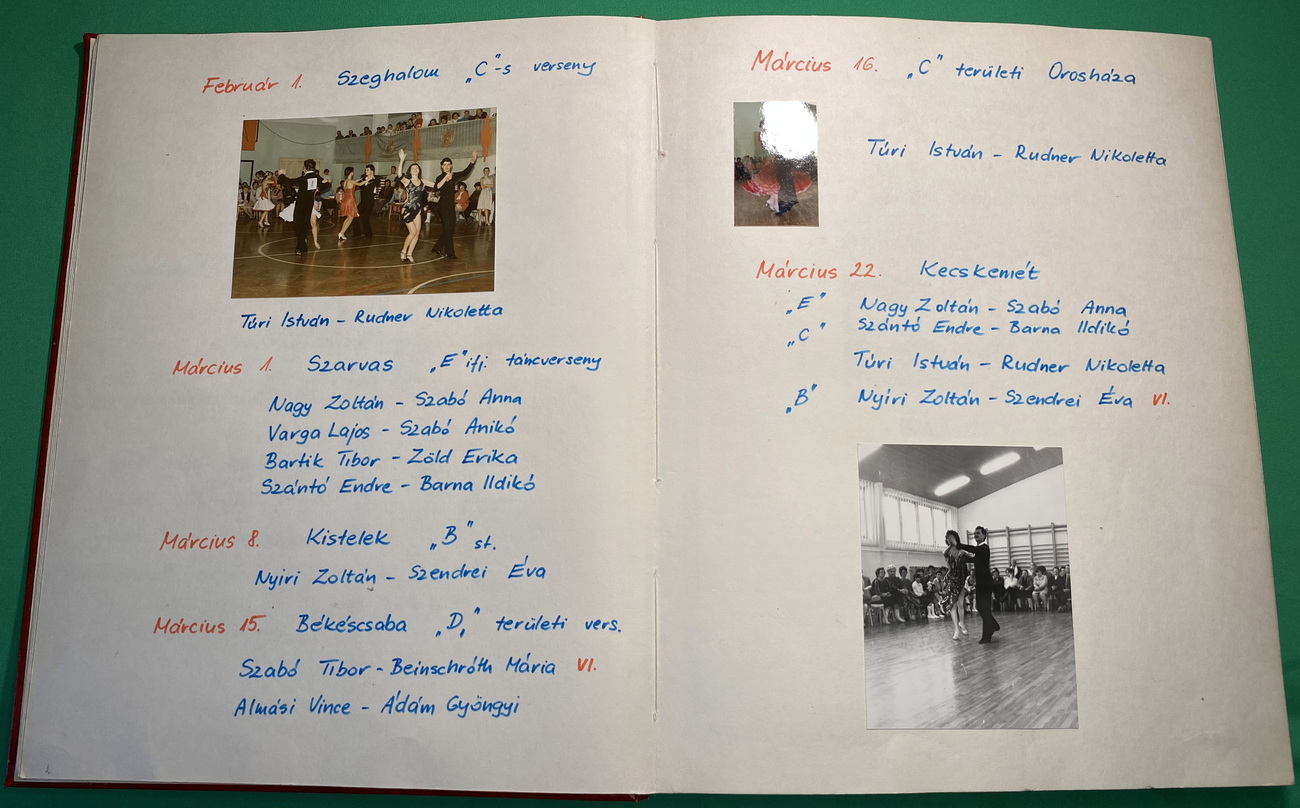 Február 1. Szeghalom „C"-s verseny
Túri István - Rudner Nikoletta
Március 1. Szarvas „E" ifj. táncverseny
Nagy Zoltán - Szabó Anna
Varga Lajos - Szabó Anikó
Bartik Tibor - Zöld Erika
Szántó Endre - Barna Ildikó
Március 8. Kistelek „B" st.
Nyiri Zoltán - Szendrei Éva
Március 15. Békéscsaba „D," területi vers.
Szabó Tibor - Beinschróth Mária VI.
Almási Vince - Ádám Gyöngyi
Március 16. „C" területi Orosháza
Túri István - Rudner Nikoletta
Március 22. Kecskemét
„E" Nagy Zoltán - Szabó Anna
„C" Szántó Endre - Barna Ildikó
Túri István - Rudner Nikoletta
„B" Nyíri Zoltán - Szendrei Éva VI.